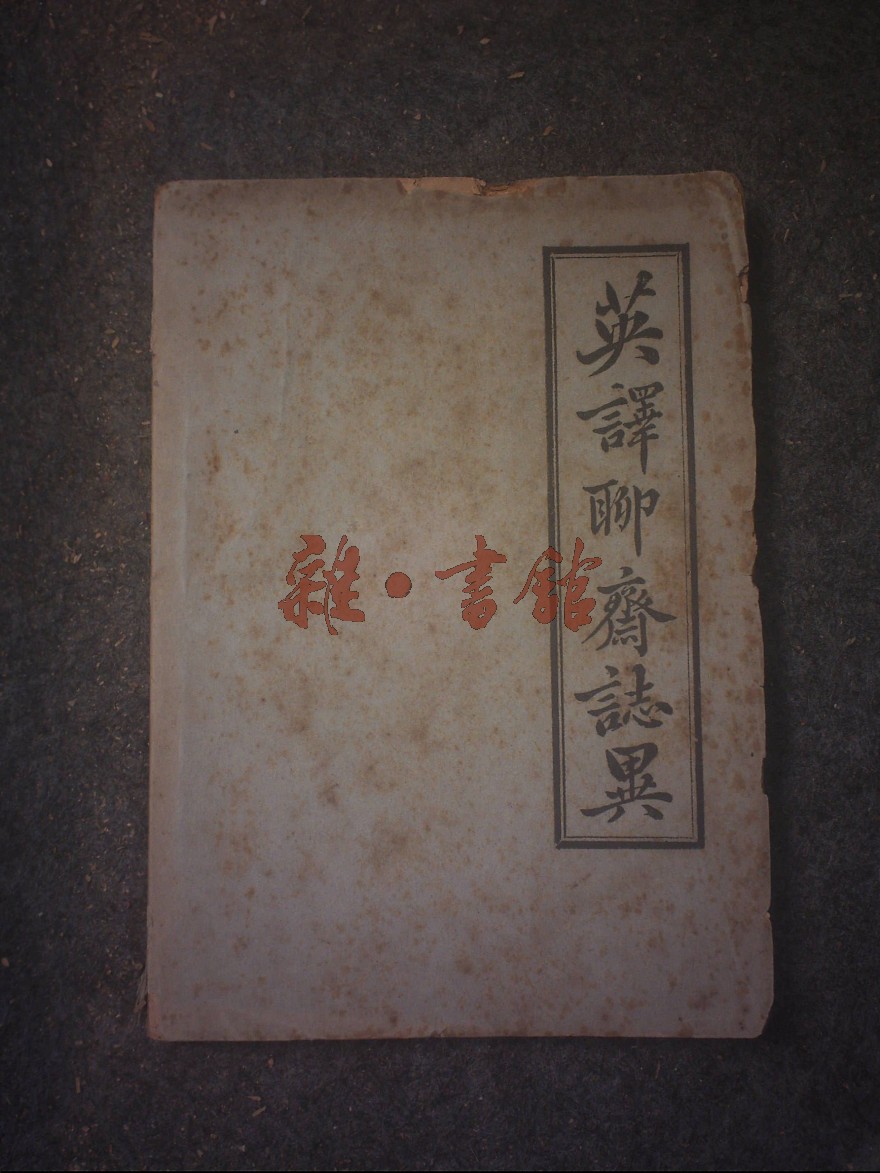 英譯聊齋誌異
雜·書館